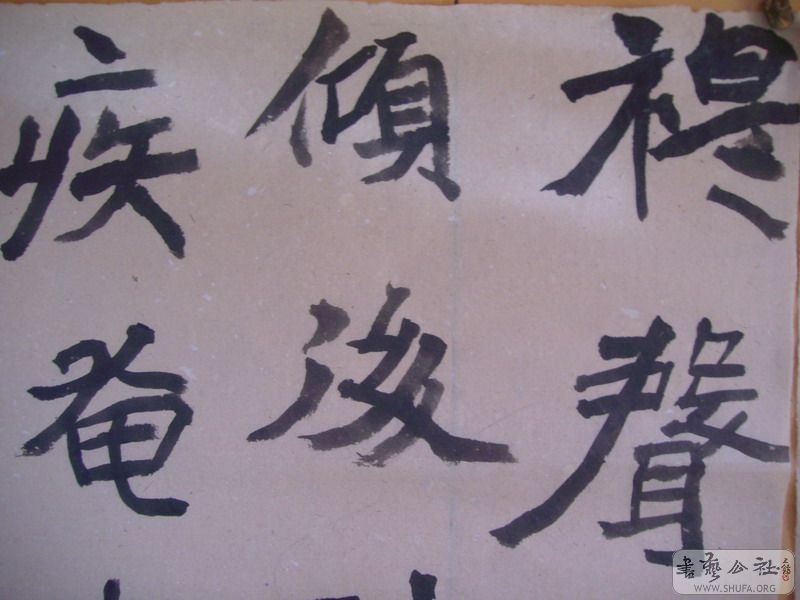 聲
傾
疾奄
書藝公社
WWW.SHUFA.ORG